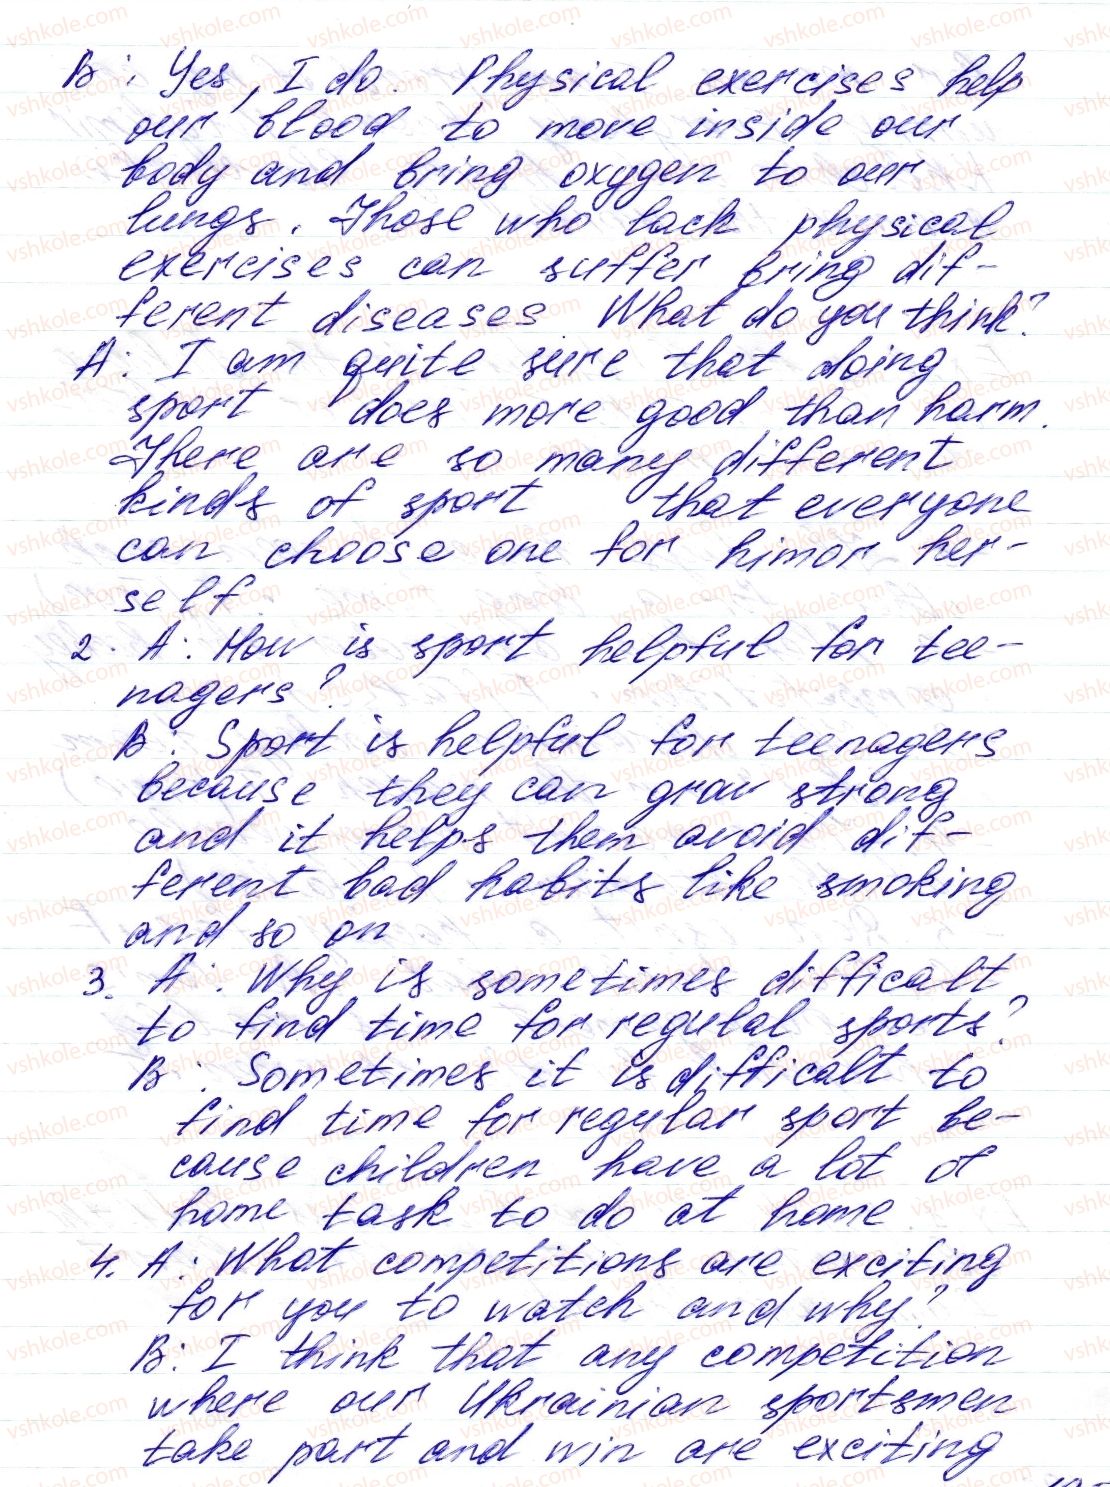 B: Yes, I do. Physical exercises help
our blood to move inside our
body and bring oxygen to our
lungs. Those who lack physical
exercises can suffer bring dif-
ferent diseases. What do you think?
A: I am quite sure that doing
sport does more good than harm.
There are so many different
kinds of sport that everyone
can choose one for himor her-
self
2. A: How is sport helpful for tee-
nagers?
B: Sport is helpful for teenagers
because they can grow strong
and it helps them avoid dif-
ferent bad habits like smoking
and so on
3. A: Why is sometimes difficalt
to find time for regulal sports?
B: Sometimes it is difficalt to
find time for regular sport be-
cause children have a lot of
home task to do at home
4. A: What competitions are exciting
for you to watch and why?
B: I think that any competition
where our Ukrainian sportsmen
take part and win are exciting